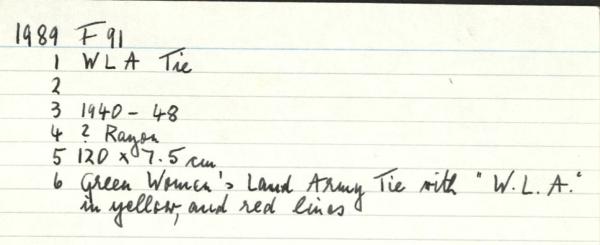 1989 F91
1 WLA Tie
2
3 1940 - 48
4 ? Rayon
5 120 x 7.5 cm
6 Green Women's Land Army Tie with "W.L.A."
in yellow, and red lines